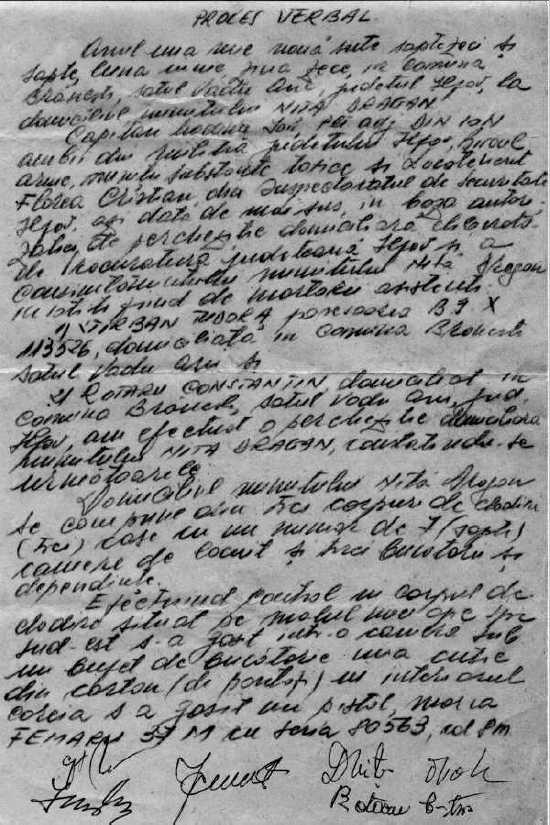 PROCES VERBAL
Anul una mie nouă sute șaptezeci și
șapte, luna iunie ziua zece, in comuna
Brănești, satul Vadu Anii, județul Ilfov, la
domiciliul numitului NIȚĂ DRAGAN
Capitan DIN ION
ambii din miliția județului Ilfov, biroul
arme, muniții substanțe toxice și Locotenent
Florea Cristian, din Inspectoratul de securitate
Ilfov, azi data de mai sus, in baza autori-
zației de percheziție domiciliară eliberată
de Procuratura județeană Ilfov și a
numitului Niță Dragan
fiind de martori asistenți
1) ȘERBAN TUDORA posesoarea B.I X
113526, domiciliată in comuna Brănești
satul Vadu Anii și
2) ROTARU CONSTANTIN, domiciliat in
comuna Brănești, satul Vadu Anii, jud.
Ilfov, am efectuat o percheziție domiciliară
numitului NIȚĂ DRAGAN, constatindu-se
urmatoarele:
Domiciliul numitului Niță Dragan
se compune din trei corpuri de cladire
(trei) case cu un numar de 7 (șapte)
camere de locuit și trei bucătării și
dependințe.
Efectuind control in corpul de
cladire situat pe
sud-est s-a găsit intr-o camera sub
un bufet de bucătărie una cutie
din carton (de pantofi) in interiorul
căreia s-a găsit un pistol, marca
FEMARU 37 M cu seria 80563, cal 8m